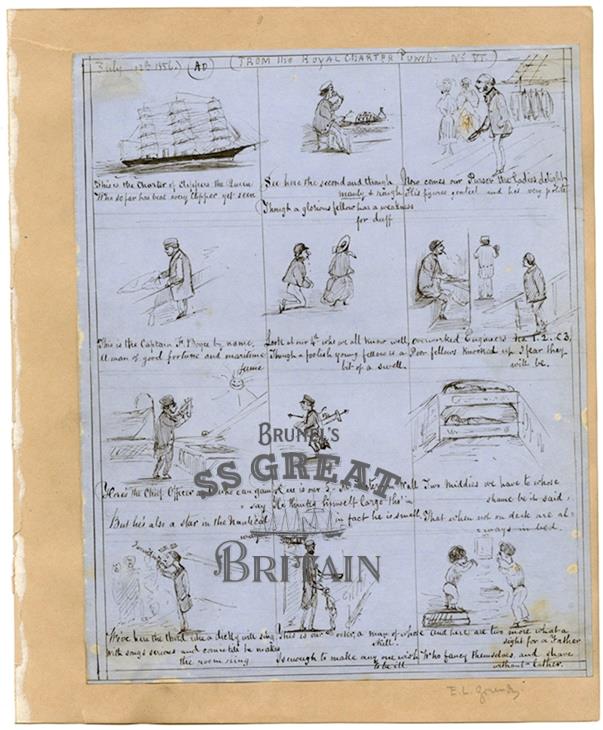 July 12th 1856.) (AD) (FROM the ROYAL CHARTER Punch. No VI.
This is the Charter of Clippers the Queen
Who so far has beat every Clipper yet seen
See here the second and though
manly & rough
Though a glorious fellow has a weakness
for duff
Now comes our Purser the Ladies delight
His figures genteel and his very polite
This is the Captain by name,
A man of good fortune and maritime
fame
Look at our 4th who we all know well,
Though a foolish young fellow is a
bit of a swell.
overworked Engineers No 1. 2. & 3,
Poor fellows knocked up I fear they
will be.
Here's the Chief Officer who can
say
But he's also a star in the Nautical
way
is our 3
He thinks himself large tho'
in fact he is small
Two Middies we have to whose
shame be it said,
That when not on deck are al-
-ways in bed.
We've here the third like a dicky will sing
With songs serious and comic he makes
the room ring
This is our a man of whose
skill
Is enough to make any one wish
to be ill
And here are two more what a
sight for a Father
Who fancy themselves and shave
without lather.
BRUNEL'S
SS GREAT
BRITAIN
E. L.